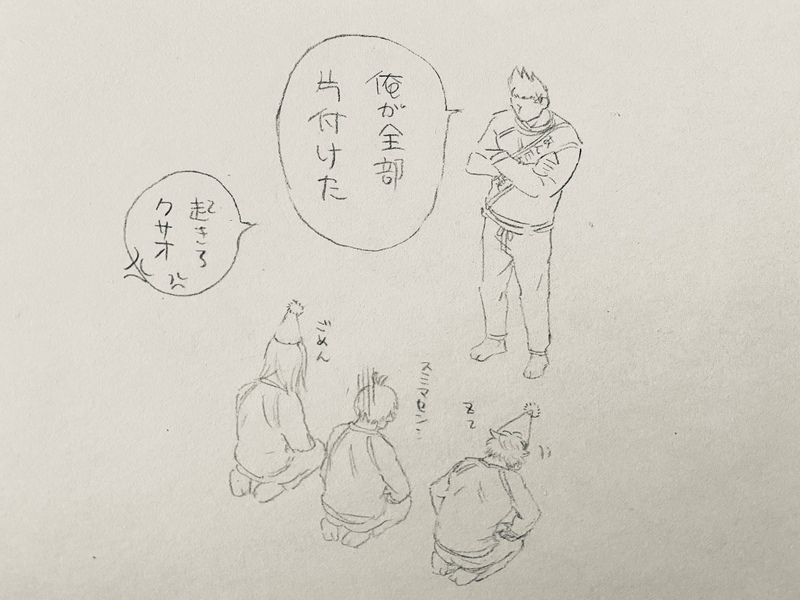 俺が全部
片付けた
起きろ
クサオ
ごめん
スミマセン…
zz